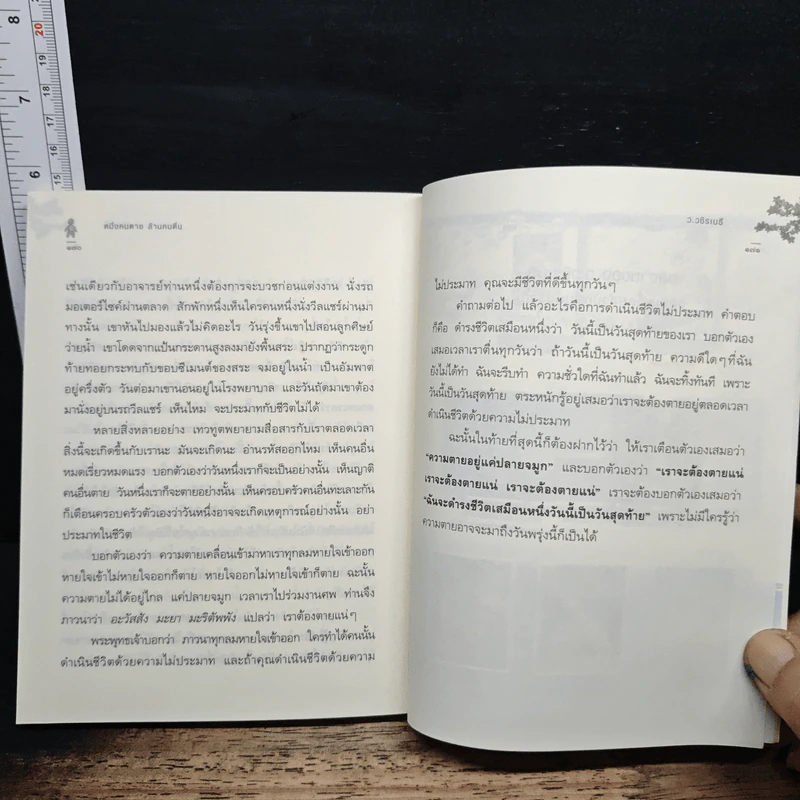 8
20
19
18
7
17
16
6
15
หนึ่งคนตาย ล้านคนตื่น
๑๗๐
เช่นเดียวกับอาจารย์ท่านหนึ่งต้องการจะบวชก่อนแต่งงาน นั่งรถ
มอเตอร์ไซค์ผ่านตลาด สักพักหนึ่งเห็นใครคนหนึ่งนั่งวีลแชร์ผ่านมา
ทางนั้น เขาหันไปมองแล้วไม่คิดอะไร วันรุ่งขึ้นเขาไปสอนลูกศิษย์
ว่ายน้ำ เขาโดดจากแป้นกระดานสูงลงมายังพื้นสระ ปรากฏว่ากระดูก
ท้ายทอยกระทบกับขอบซีเมนต์ของสระ จมอยู่ในน้ำ เป็นอัมพาต
อยู่ครึ่งตัว วันต่อมาเขานอนอยู่ในโรงพยาบาล และวันถัดมาเขาต้อง
มานั่งอยู่บนรถวีลแชร์ เห็นไหม จะประมาทกับชีวิตไม่ได้
หลายสิ่งหลายอย่าง เทวทูตพยายามสื่อสารกับเราตลอดเวลา
สิ่งนี้จะเกิดขึ้นกับเรานะ มันจะเกิดนะ อ่านรหัสออกไหม เห็นคนอื่น
หมดเรี่ยวหมดแรง บอกตัวเองว่าวันหนึ่งเราก็จะเป็นอย่างนั้น เห็นญาติ
คนอื่นตาย วันหนึ่งเราก็จะตายอย่างนั้น เห็นครอบครัวคนอื่นทะเลาะกัน
ก็เตือนครอบครัวตัวเองว่าวันหนึ่งอาจจะเกิดเหตุการณ์อย่างนั้น อย่า
ประมาทในชีวิต
บอกตัวเองว่า ความตายเคลื่อนเข้ามาหาเราทุกลมหายใจเข้าออก
หายใจเข้าไม่หายใจออกก็ตาย หายใจออกไม่หายใจเข้าก็ตาย ฉะนั้น
ความตายไม่ได้อยู่ไกล แค่ปลายจมูก เวลาเราไปร่วมงานศพ ท่านจึง
ภาวนาว่า อะวัสสัง มะยา มะริตัพพัง แปลว่า เราต้องตายแน่ๆ
พระพุทธเจ้าบอกว่า ภาวนาทุกลมหายใจเข้าออก ใครทำได้คนนั้น
ดำเนินชีวิตด้วยความไม่ประมาท และถ้าคุณดำเนินชีวิตด้วยความ
ว.วชิรเมธี
๑๗๑
ไม่ประมาท คุณจะมีชีวิตที่ดีขึ้นทุกวันๆ
คำถามต่อไป แล้วอะไรคือการดำเนินชีวิตไม่ประมาท คำตอบ
ก็คือ ดำรงชีวิตเสมือนหนึ่งว่า วันนี้เป็นวันสุดท้ายของเรา บอกตัวเอง
เสมอเวลาเราตื่นทุกวันว่า ถ้าวันนี้เป็นวันสุดท้าย ความดีใดๆ ที่ฉัน
ยังไม่ได้ทำ ฉันจะรีบทำ ความชั่วใดที่ฉันทำแล้ว ฉันจะทิ้งทันที เพราะ
วันนี้เป็นวันสุดท้าย ตระหนักรู้อยู่เสมอว่าเราจะต้องตายอยู่ตลอดเวลา
ดำเนินชีวิตด้วยความไม่ประมาท
ฉะนั้นในท้ายที่สุดนี้ก็ต้องฝากไว้ว่า ให้เราเตือนตัวเองเสมอว่า
“ความตายอยู่แค่ปลายจมูก” และบอกตัวเองว่า “เราจะต้องตายแน่
เราจะต้องตายแน่ เราจะต้องตายแน่” เราจะต้องบอกตัวเองเสมอว่า
“ฉันจะดำรงชีวิตเสมือนหนึ่งวันนี้เป็นวันสุดท้าย” เพราะไม่มีใครรู้ว่า
ความตายอาจจะมาถึงวันพรุ่งนี้ก็เป็นได้